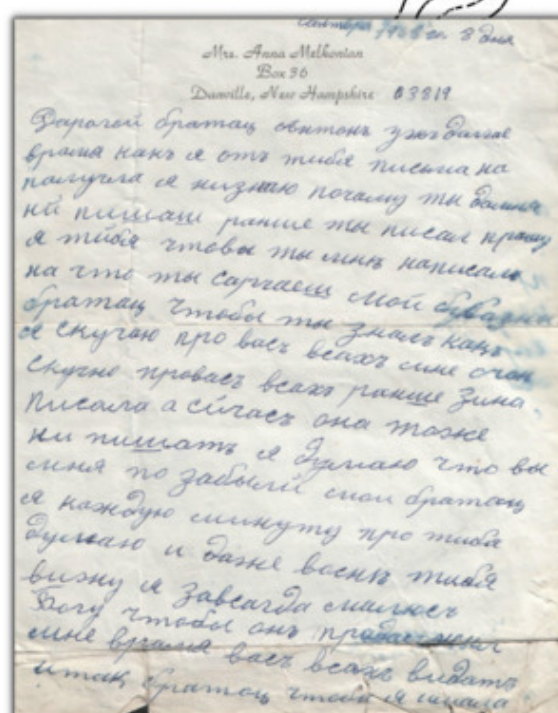 сентября 1968 г. 8 дня
Mrs. Anna Melkonian
Box 36
Danville, New Hampshire 03819
Дарогой братац овитонъ ужъ
врама какъ я отъ тибя писма на
палучла я низнаю почаму ты
ни пишаш ранше ты писал прашу
я тибя чтобы ты мнѣ написалъ
на что ты сарчаеш мой
братац чтобы ты зналъ какъ
я скучаю про васъ всахъ мне очон
скучно провасъ всахъ ранше Зина
писала а сичасъ она тоже
ни пишатъ я думаю что вы
миня по забыли мои братац
я каждую минуту про тиба
думаю и даже воснѣ тибя
вижу я завсагда малюсъ
Богу чтобы онъ
мне врамя васъ всахъ видать
итак братац чтоби я